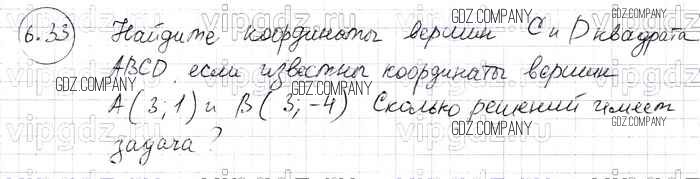 6.33 Найдите координаты вершин C и D квадрата
ABCD, если известны координаты вершин
A(3;1) и B(3;-4) Сколько решений имеет
задача?
GDZ.COMPANY
GDZ.COMPANY
GDZ.COMPANY
GDZ.COMPANY
GDZ.COMPANY
GDZ.COMPANY
vipgdz
vipgdz